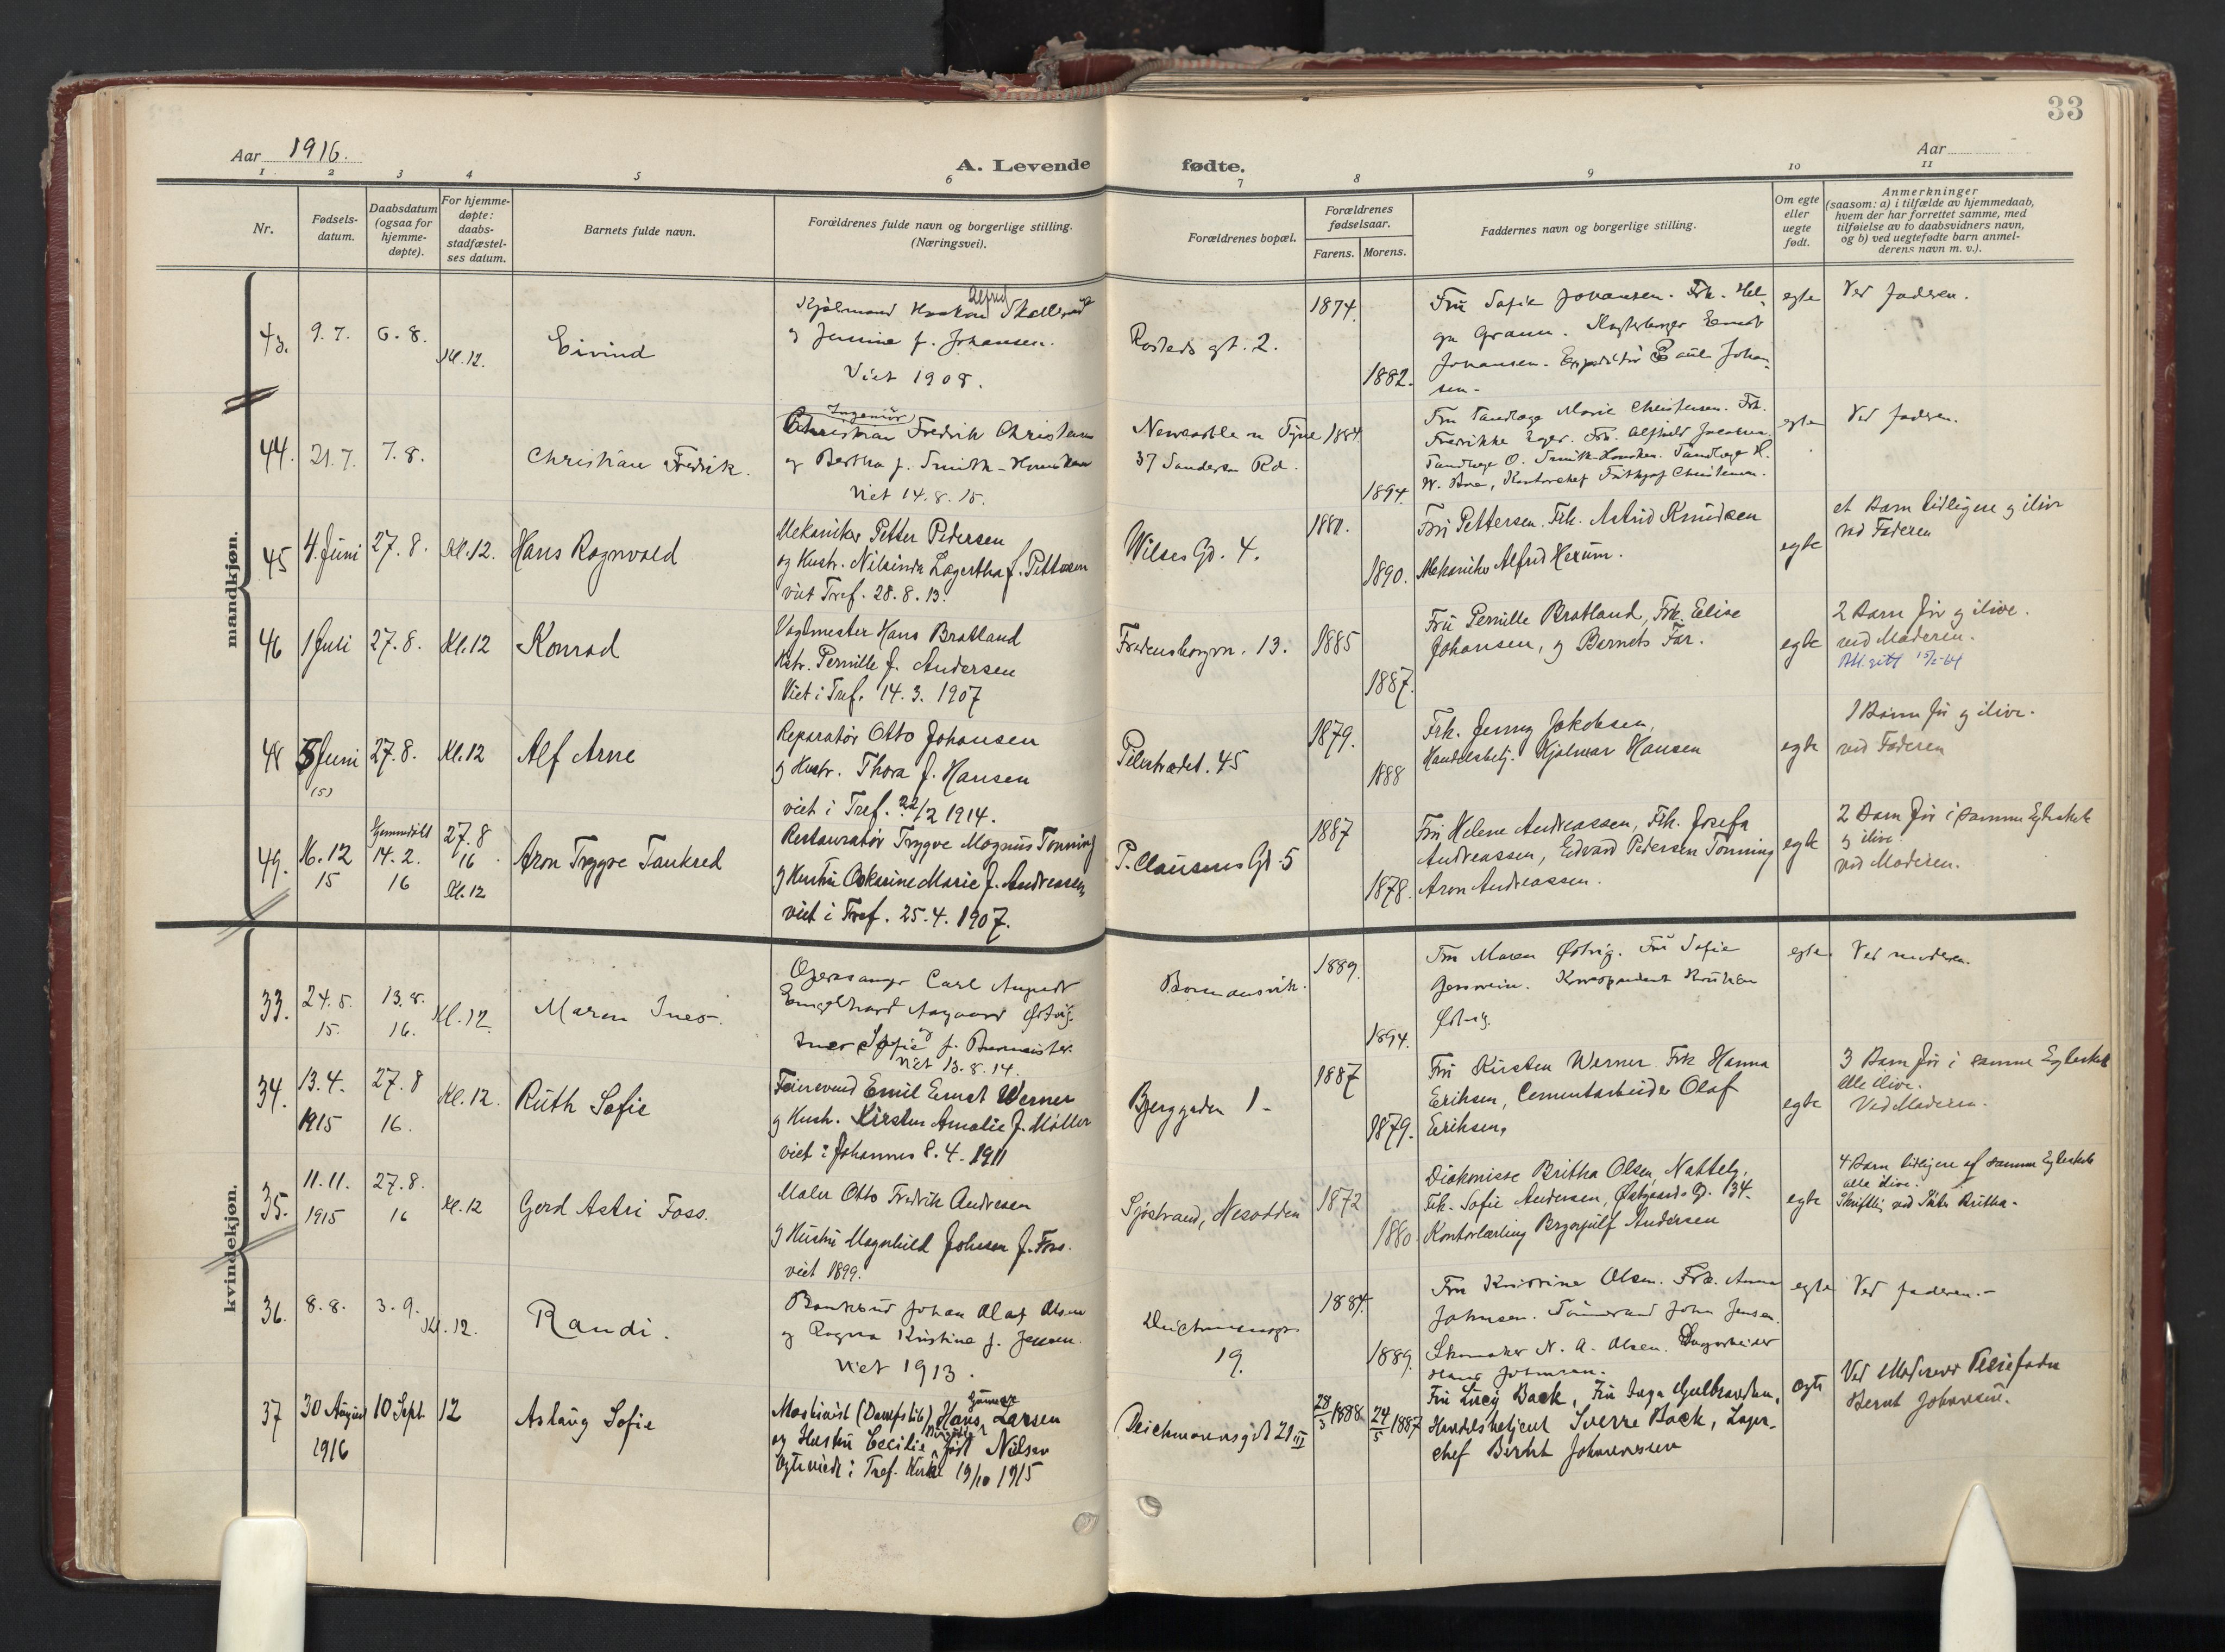 33
Aar 1916.
A. Levende fødte.
Aar
1 2 3 4 5 6 7 8 9 10 11
Nr.
Fødsels-
datum.
Daabsdatum
(ogsaa for
hjemme-
døpte).
For hjemme-
døpte:
daabs-
stadfæstel-
ses datum.
Barnets fulde navn.
Forældrenes fulde navn og borgerlige stilling.
(Næringsvei).
Forældrenes bopæl.
Forældrenes
fødselsaar.
Farens. Morens.
Faddernes navn og borgerlige stilling.
Om egte
eller
uegte
født.
Anmerkninger
(saasom: a) i tilfælde av hjemmedaab,
hvem der har forrettet samme, med
tilføielse av to daabsvidners navn,
og b) ved uegtefødte barn anmel-
derens navn m. v.).
mandkjøn.
43. 9. 7. 6. 8. Kl. 12.
Eivind
Alfred
Haakon
g Jensine f. Johansen.
Viet 1908.
Rosteds gt. 2.
1874.
1882.
Fru Sofie Johansen. Frk. Hel
ga Johansen. Paul Johan
sen.
egte
Ved faderen.
44. 21. 7. 7. 8.
Christian Fredrik.
Ingeniør
Christian Fredrik Christensen
og Bertha f. Smith-
Viet 14. 8. 15.
Newcastle on Tyne
37 Sanderson Rd.
1884.
1894.
Fru Tandlæge Marie Christensen. Frk.
Fredrikke Frk. Alfhild Jacobsen
Tandlæge O. Smith- Tandlæge H.
W. Kontorchef Christensen.
egte
Ved faderen.
45 4. Juni 27. 8. Kl. 12.
Hans Ragnvald
Mekaniker Petter Pedersen
og Hustr. Nilsine Lagertha f. Pettersen
viet Tref. 28. 8. 13.
Wilses Gd. 4.
1881.
1890.
Fru Pettersen. Frk. Astrid Knudsen
Mekaniker Alfred Hexum.
egte
et Barn tidligere g ilive
ved Faderen
46 1 Juli 27. 8. Kl. 12
Konrad
Vogtmester Hans Bratland
Hstr. Pernille f. Andersen
Viet i Tref. 14. 3. 1907
Fredensborgvn. 13.
1885
1887.
Fru Pernille Bratland, Frk. Elise
Johansen, g Barnets Far.
egte
2 Barn før g ilive.
ved Moderen.
48 5 Juni 27. 8. Kl. 12
(5)
Alf Arne
Reparatør Otto Johansen
g Hustr. Thora f. Hansen
viet i Tref. 22/2 1914.
Pilestrædet. 45
1879.
1888
Frk. Jenny Jakobsen,
Handelsbetj. Hjalmar Hansen
egte
1 Barn før g ilive.
ved Faderen
49. 16. 12 15
Hjemmedøbt
14. 2. 16
27. 8 16
Kl. 12
Aron Trygve Tankred
Restauratør Trygve Magnus Tonning
g Hustru Oskarine Marie f. Andreassen,
viet i Tref. 25. 4. 1907.
P. Clausens Gd. 5
1887
1878.
Fru Helene Andreassen, Frk. Josefa
Andreassen, Edvard Pedersen Tonning
Aron Andreassen.
egte
2 Barn før i samme Egteskab
g ilive.
ved Moderen.
kvindekjøn.
33. 24. 5. 15. 13. 8. 16. Kl. 12.
Maren Ines.
Operasanger Carl August
Engelhard Aagaard Østvig.
Ines Sofie f. Burmeister.
viet 13. 8. 14.
1889.
1894.
Fru Maren Østvig. Fru Sofie
Østvig.
egte
Ved moderen.
34. 13. 4. 1915 27. 8 16. Kl. 12.
Ruth Sofie
Feiersvend Emil Ernst Werner
g Hustr. Kirsten Amalie f. Møller
viet i Johannes 8. 4. 1911
Bjerggaden 1
1887
1879.
Fru Kirsten Werner Frk Hanna
Eriksen, Cementarbeider Olaf
Eriksen,
egte
3 Barn før i samme Egteskab
alle ilive.
Ved Moderen.
35. 11. 11. 1915 27. 8. 16 Kl. 12
Gerd Astri Foss.
Maler Otto Fredrik Andresen
g Hustru Magnhild Johnsen f. Foss.
viet 1899.
Sjøstrand, Nesodden
1872
1880
Diakonisse Britha Olsen,
Frk. Sofie Andersen, Gd. 134.
Kontorlærling Brynjulf Andersen
egte
4 Barn tidligere af samme Egteskab
alle ilive.
Skriftlig ved Søster Britha.
36. 8. 8. 3. 9. Kl. 12.
Randi.
Bankbud Johan Olaf Olsen
og Ragna Kristine f. Jensen.
Viet 1913.
Deichmansgt
19.
1884.
1889.
Fru Olsen. Frk. Anna
Johnsen. Tømmermand John Jensen.
Skomaker N. A. Olsen. Lagerarbeider
Hans Johnsen.
egte
Ved faderen.
37 30 August 1916 10 Sept. 12
Aslaug Sofie
Maskinist (Dampskib) Hans Gunnar Larsen
og Hustru Cecilie født Nielsen
Egteviede i Tref. Kirke 19/10 1915
Deichmannsgt 21 III
28/3 1888
24/5 1887
Fru Lucy Back, Fru Inga Gulbrandsen,
Handelsbetjent Sverre Back, Lager-
chef Bernt Johannessen
egte
Ved Moderens Pleiefader
Bernt Johannesen.